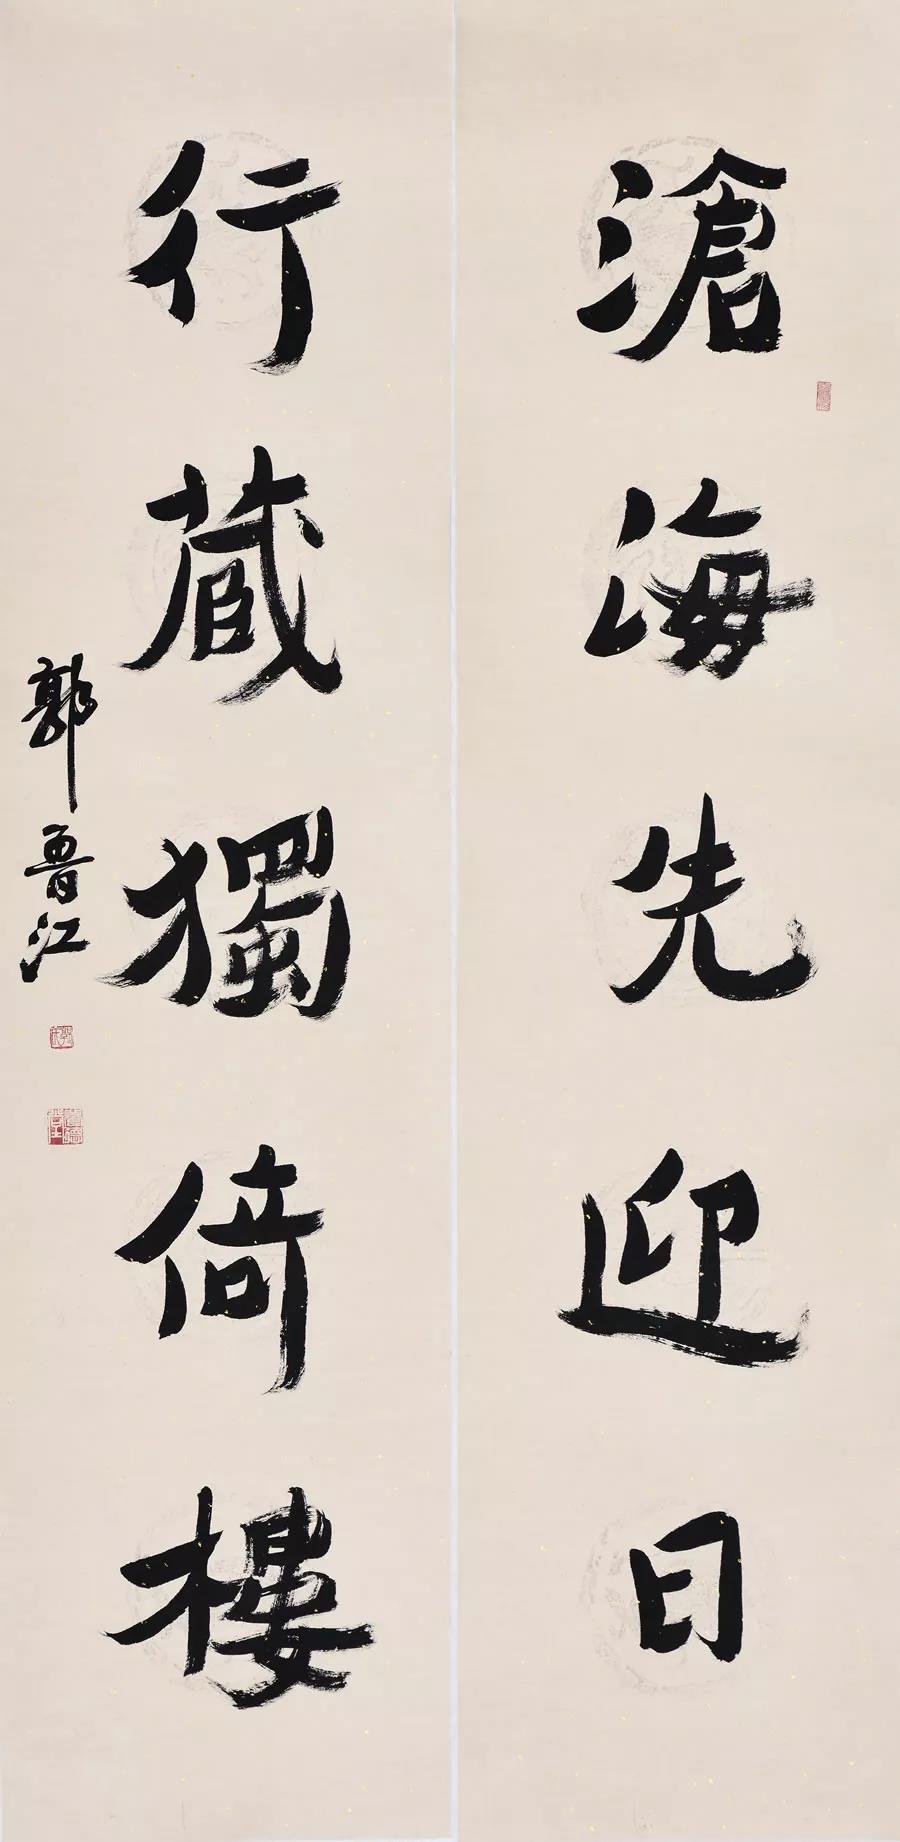 滄海先迎日
行藏獨倚樓
郭魯江